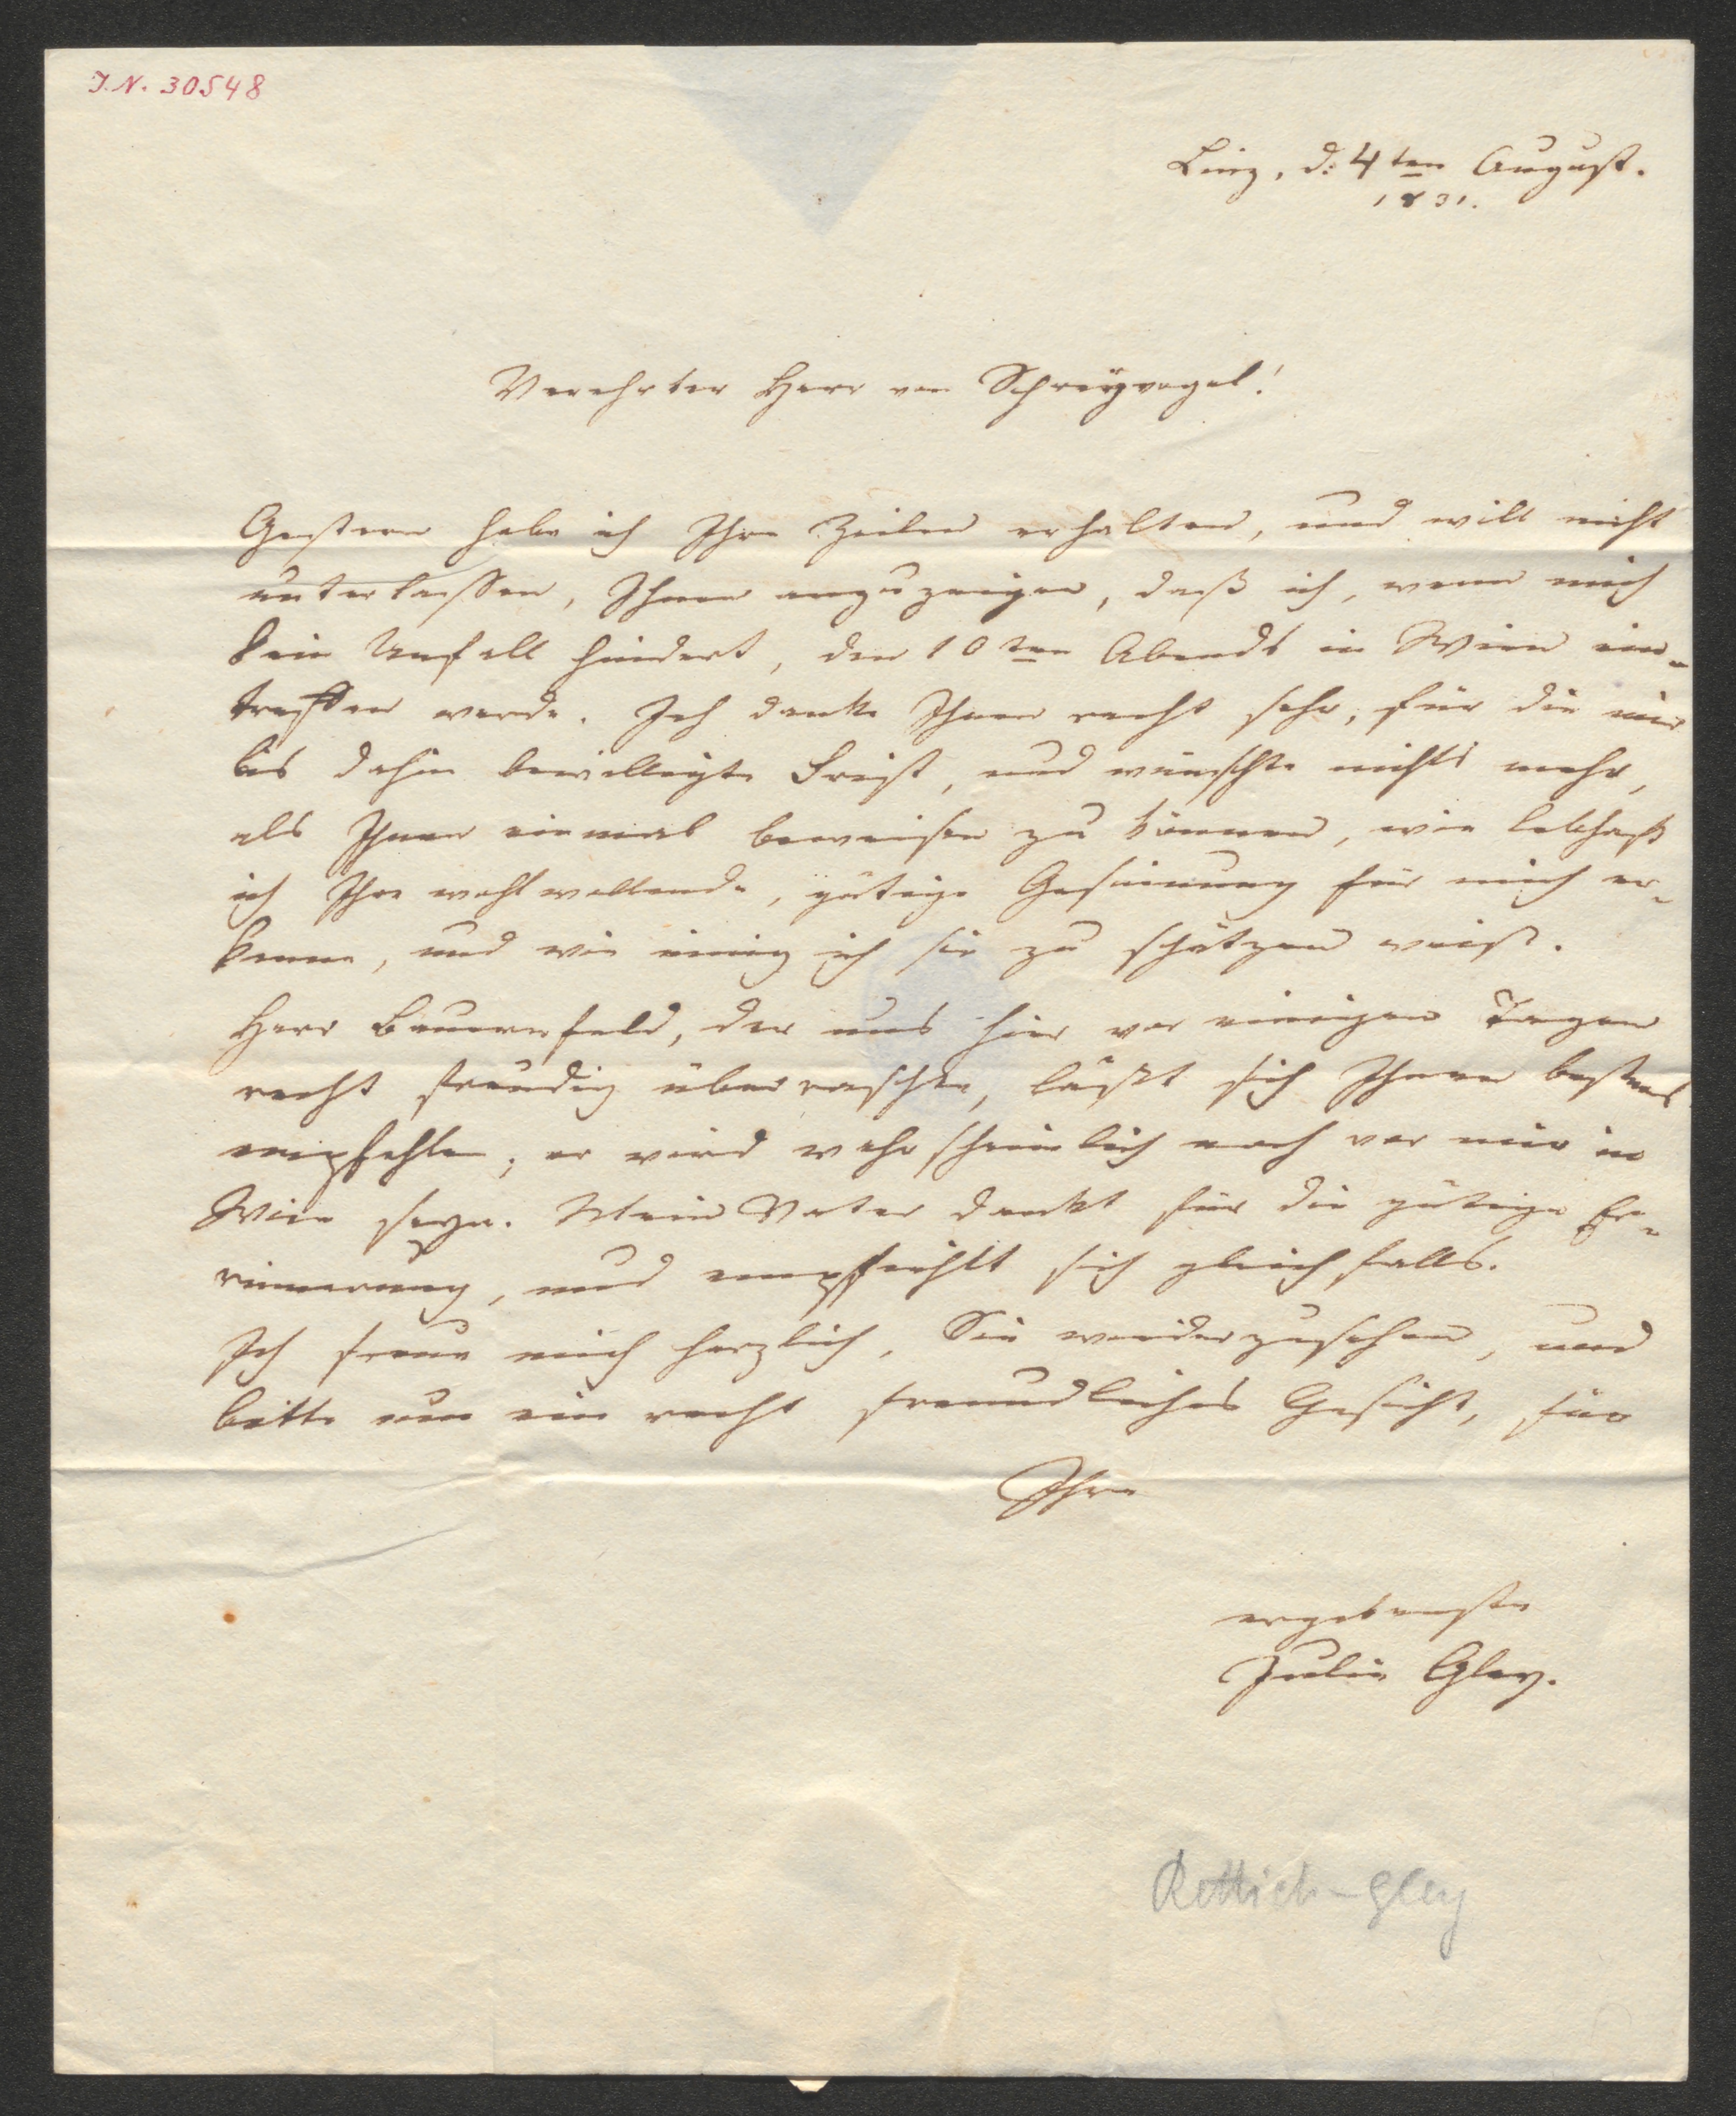 I.N. 30548
Linz, d: 4ten August.
1831.
Verehrter Herr von Schreyvogel!
Gestern habe ich Ihre Zeilen erhalten, und will nicht
unterlassen, Ihnen anzuzeigen, daß ich, wenn mich
kein Unfall hindert, den 10ten Abends in Wien ein-
treffen werde. Ich danke Ihnen recht sehr, für die mir
bis dahin bewilligte Frist, und wünschte nichts mehr,
als Ihnen einmal beweisen zu können, wie lebhaft
ich Ihre wohlwollende, gütige Gesinnung für mich er-
kenne, und wie innig ich sie zu schätzen weiß.
Herr Bauernfeld, der uns hier vor einigen Tagen
recht freudig überraschte, läßt sich Ihnen bestens
empfehlen; er wird wahrscheinlich noch vor mir in
Wien seyn. Mein Vater dankt für die gütige Er-
rinnerung, und empfiehlt sich gleichfalls.
Ich freue mich herzlich, Sie wiederzusehen, und
bitte um ein recht freundliches Gesicht, für
Ihre
ergebenste
Julie Gley.
Rettich-Gley